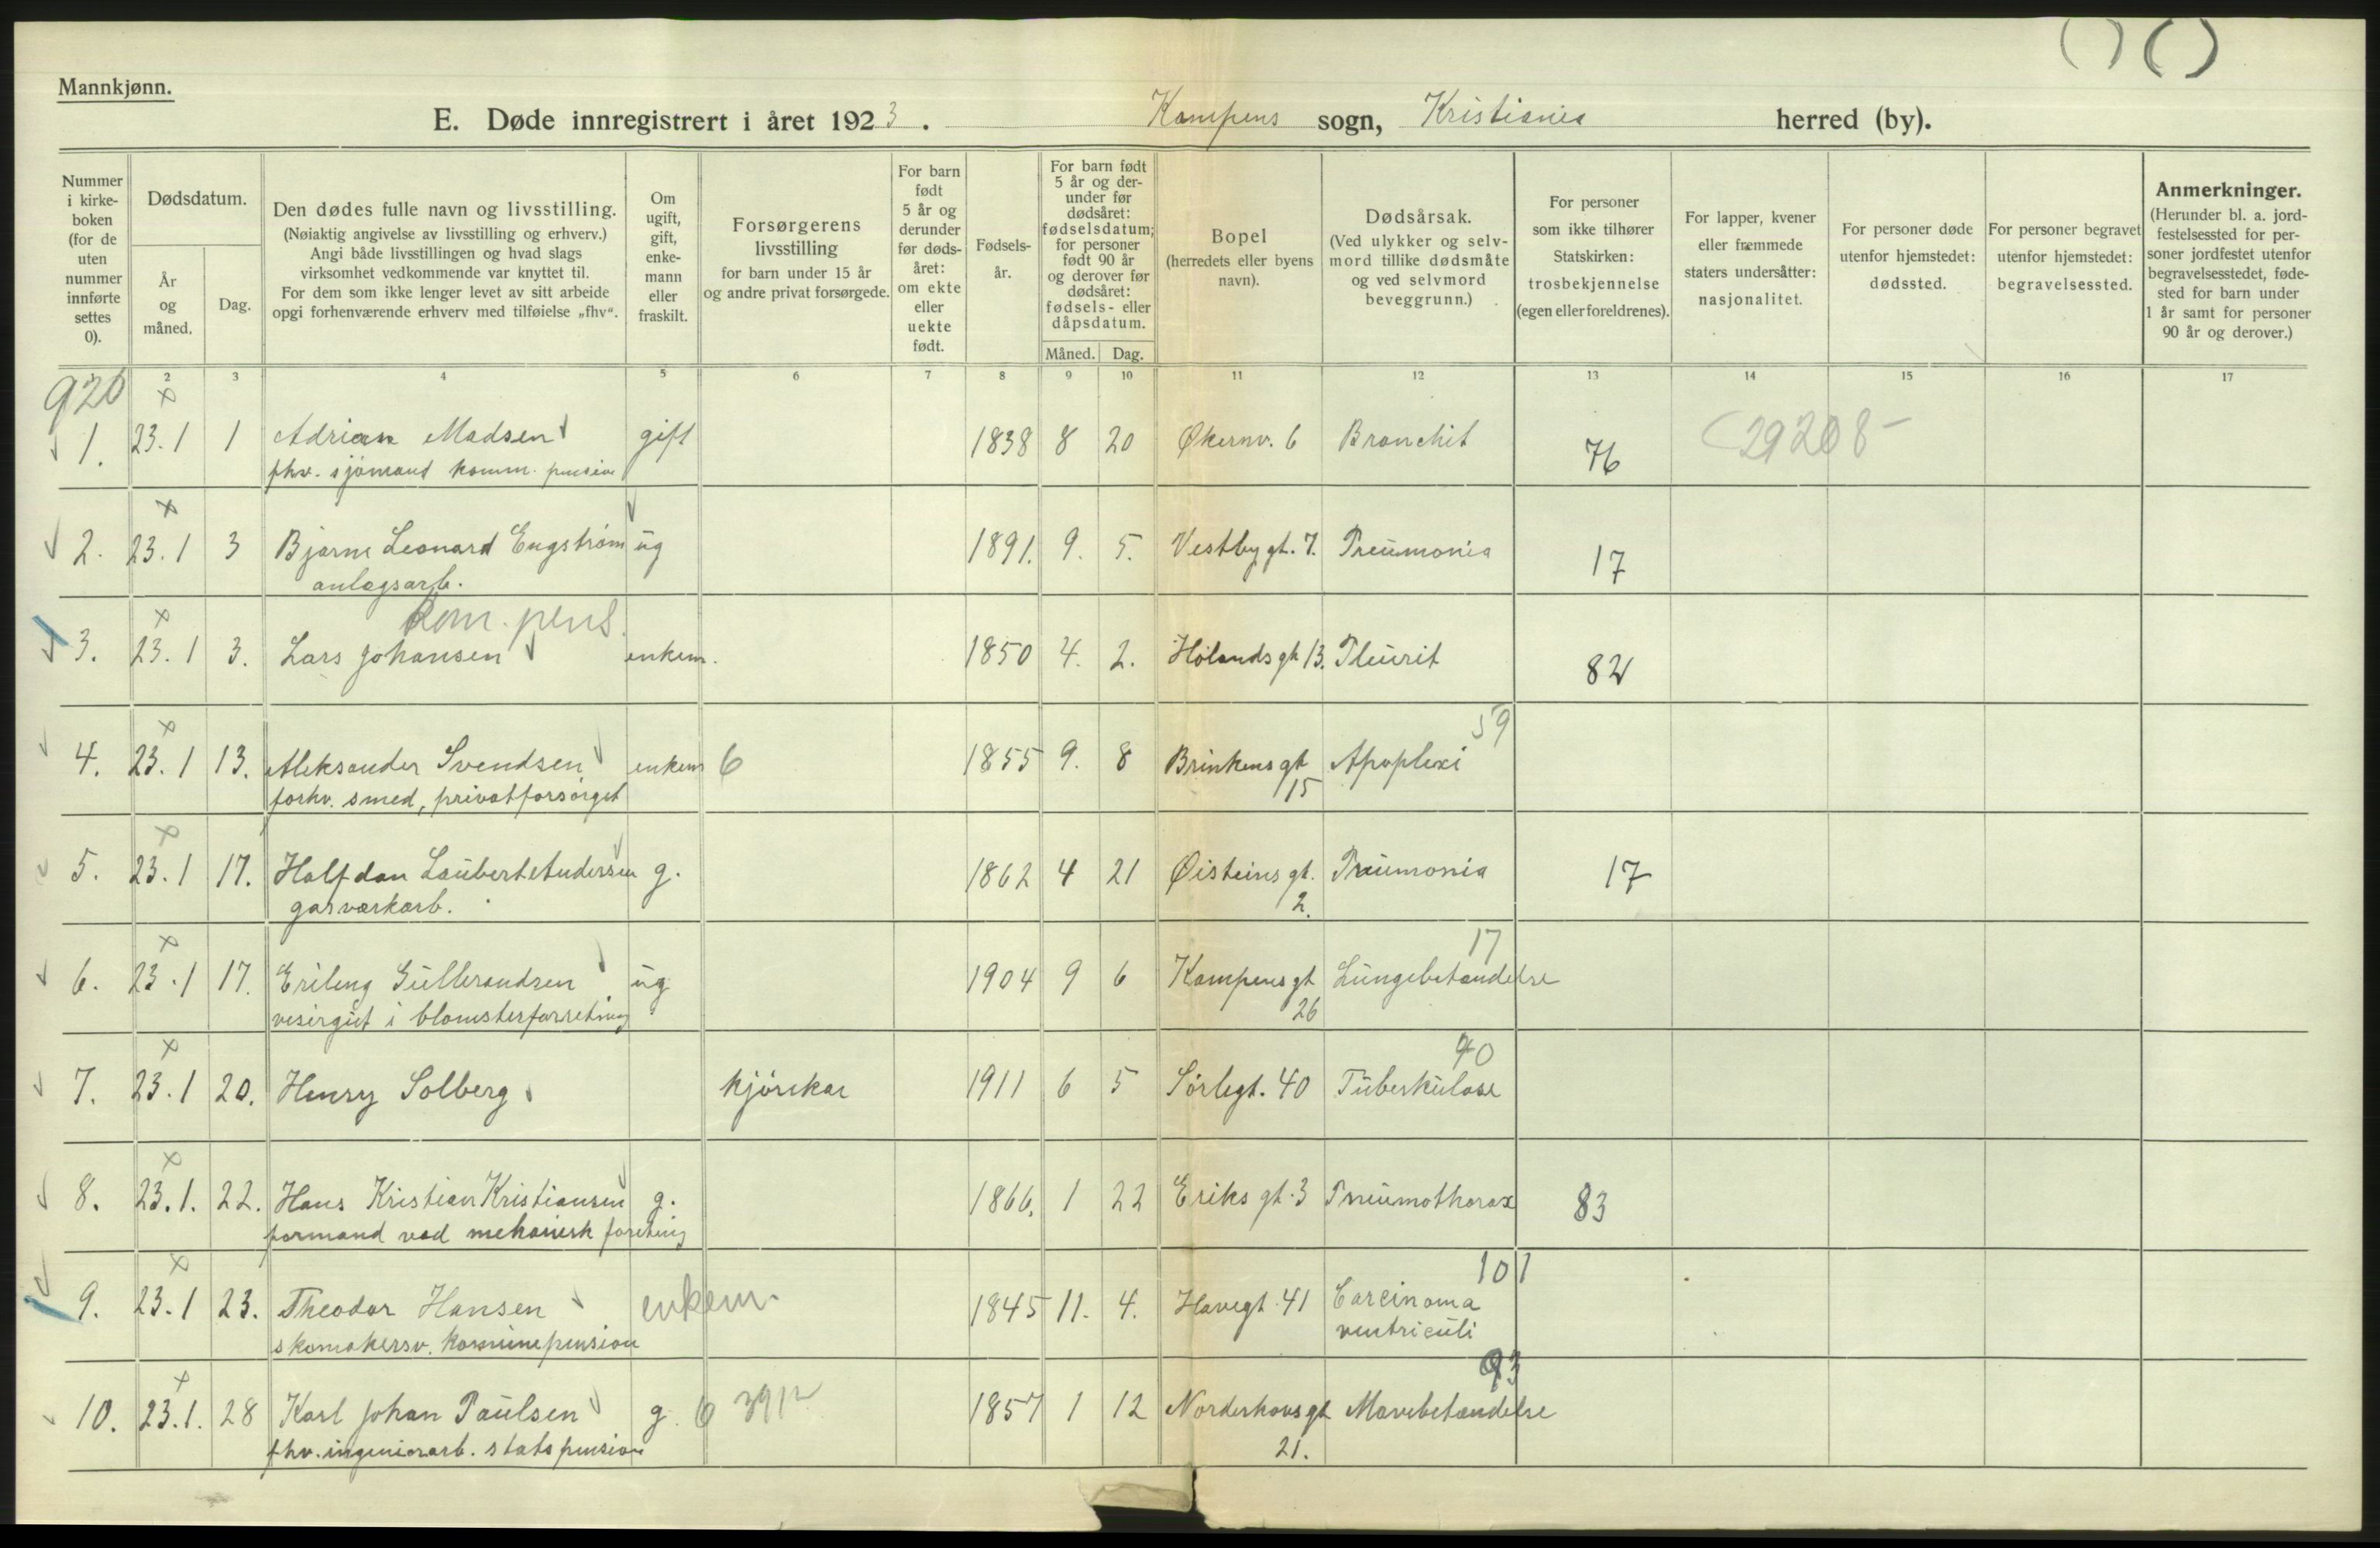 Mannkjønn.
E. Døde innregistrert i året 1923. Kampens sogn, Kristiania herred (by).
Nummer i kirke-boken (for de uten nummer innførte settes 0).
Dødsdatum.
År og måned.
Dag.
Den dødes fulle navn og livsstilling.
(Nøiaktig angivelse av livsstilling og erhverv.)
Angi både livsstillingen og hvad slags
virksomhet vedkommende var knyttet til.
For dem som ikke lenger levet av sitt arbeide
opgi forhenværende erhverv med tilføielse „fhv“.
Om ugift, gift, enke-mann eller fraskilt.
Forsørgerens livsstilling
for barn under 15 år
og andre privat forsørgede.
For barn født 5 år og derunder før døds-året: om ekte eller uekte født.
Fødsels-år.
For barn født 5 år og der-under før dødsåret: fødselsdatum; for personer født 90 år og derover før dødsåret: fødsels- eller dåpsdatum.
Måned. Dag.
Bopel
(herredets eller byens navn).
Dødsårsak.
(Ved ulykker og selv-mord tillike dødsmåte og ved selvmord beveggrunn.)
For personer som ikke tilhører Statskirken: trosbekjennelse (egen eller foreldrenes).
For lapper, kvener eller fremmede staters undersåtter: nasjonalitet.
For personer døde utenfor hjemstedet: dødssted.
For personer begravet utenfor hjemstedet: begravelsessted.
Anmerkninger.
(Herunder bl. a. jord-festelsessted for per-soner jordfestet utenfor begravelsesstedet, føde-sted for barn under 1 år samt for personer 90 år og derover.)
2 3 4 5 6 7 8 9 10 11 12 13 14 15 16 17
920
1. 23.1 1 Adrian Madsen gift 1838 8 20 Økernv. 6 Bronchit 76 29208
fhv. sjømand komm. pension
2. 23.1 3 Bjarne Leonard Engstrøm ug 1891. 9. 5. Vestbygt. 7. Pneumonia 17
anlægsarb.
kom. pens.
3. 23.1 3. Lars Johansen enkem. 1850 4. 2. Hølandsgt 13. Pleurit 82
59
4. 23.1 13. Aleksander Svendsen enkem 6 1855 9. 8 Brinkens gt 15 Apoplexi
forhv. smed, privatforsørget
5. 23.1 17. Halfdan Laubert Andersen g. 1862 4 21 Øisteins gt. 2. Pneumonia 17
gasværkarb.
17
6. 23.1 17. Erling Gullerandsen ug 1904 9 6 Kampens gt 26 Lungebetændelse
visergut i blomsterforretning
40
7. 23.1 20. Henry Solberg kjørekar 1911 6 5 Sørlegt. 40 Tuberkulose
8. 23.1. 22. Hans Kristian Kristiansen g. 1866. 1 22 Eriks gt. 3 Pneumothorax 83
formand ved mekanisk foretning
101
9. 23.1 23. Theodor Hansen enkem. 1845 11. 4. Havegt. 41 Carcinoma
skomakersv. kommunepension ventriculi
93
10. 23.1. 28 Karl Johan Paulsen g. 6 1857 1 12 Norderhovs gt 21. Mavebetændelse
fhv. ingeniørarb. statspension